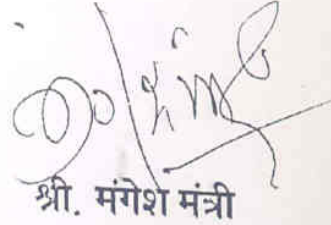 श्री. मंगेश मंत्री